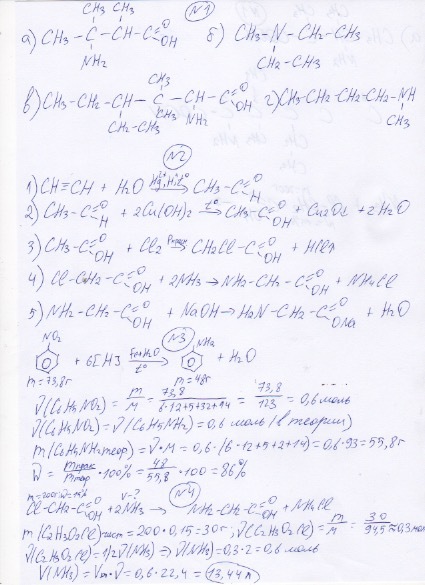 №1
CH3 CH3
а) CH3 - C - CH - C=O OH б) CH3 - N - CH2 - CH3
NH2 CH2 - CH3
CH3
в) CH3 - CH2 - CH - C - CH - C=O OH г) CH3 - CH2 - CH2 - CH2 - NH
CH2 - CH3 CH3 NH2 CH3
№2
1) CH≡CH + H2O → CH3 - C=O H
2) CH3 - C=O H + 2Cu(OH)2 t° → CH3 - C=O OH + Cu2O↓ + 2H2O
3) CH3 - C=O OH + Cl2 → CH2Cl - C=O OH + HCl
4) Cl - CH2 - C=O OH + 2NH3 → NH2 - CH2 - C=O OH + NH4Cl
5) NH2 - CH2 - C=O OH + NaOH → H2N - CH2 - C=O ONa + H2O
№3
NO2 NH2
+ 6[H] Fe+H2O t° → + H2O
m = 73,8г m = 48г
ν(C6H5NO2) = m/M = 73,8/6·12+5+32+14 = 73,8/123 = 0,6 моль
ν(C6H5NO2) = ν(C6H5NH2) = 0,6 моль (в теории)
m(C6H5NH2теор) = ν·M = 0,6·(6·12+5+2+14) = 0,6·93 = 55,8г
W = mпрак/mтеор ·100% = 48/55,8 ·100 = 86%
№4
m=200г W=15% V-?
Cl-CH2-C=O OH + 2NH3 → NH2-CH2-C=O OH + NH4Cl
m(C2H3O2Cl)чист = 200·0,15 = 30г, ν(C2H3O2Cl) = m/M = 30/94,5 ≈ 0,3 мол
ν(C2H3O2Cl) = 1/2ν(NH3) ⇒ ν(NH3) = 0,3·2 = 0,6 моль
V(NH3) = Vm·ν = 0,6·22,4 = 13,44л